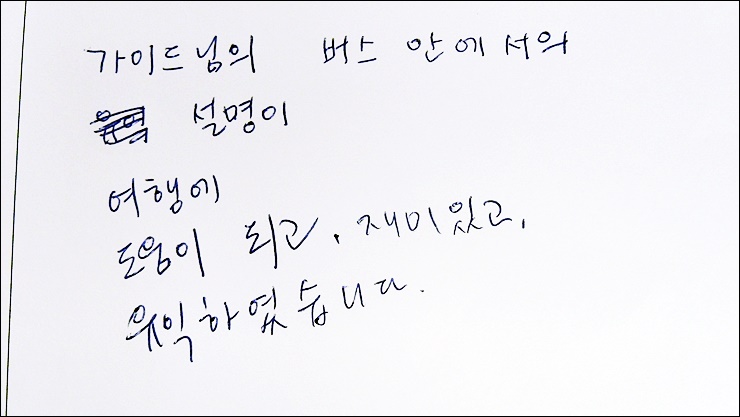 가이드님의 버스 안에서의
설명이
여행에
도움이 되고, 재미있고,
유익하였습니다.